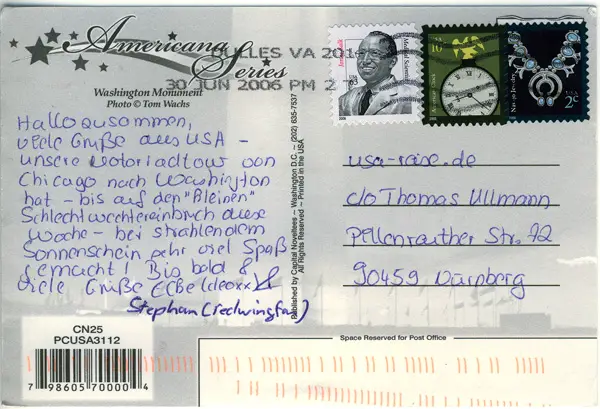 Americana
Series
Washington Monument
Photo © Tom Wachs
DULLES VA 201
30 JUN 2006 PM 2 T
USA
10
USA
2c
Hallo zusammen,
viele Grüße aus USA -
unsere Motorradtour von
Chicago nach Washington
hat - bis auf den "kleinen"
Schlechtwettereinbruch diese
Woche - bei strahlendem
Sonnenschein sehr viel Spaß
gemacht! Bis bald &
viele Grüße
Stephan (redwingfan)
usa-reise.de
c/o Thomas Ullmann
Pellenreuther Str. 72
90459 Nürnberg
Published by Capital Novelties – Washington D.C. – (202) 635-7537
All Rights Reserved – Printed in the USA
Space Reserved for Post Office
CN25
PCUSA3112
7 98605 70000 4